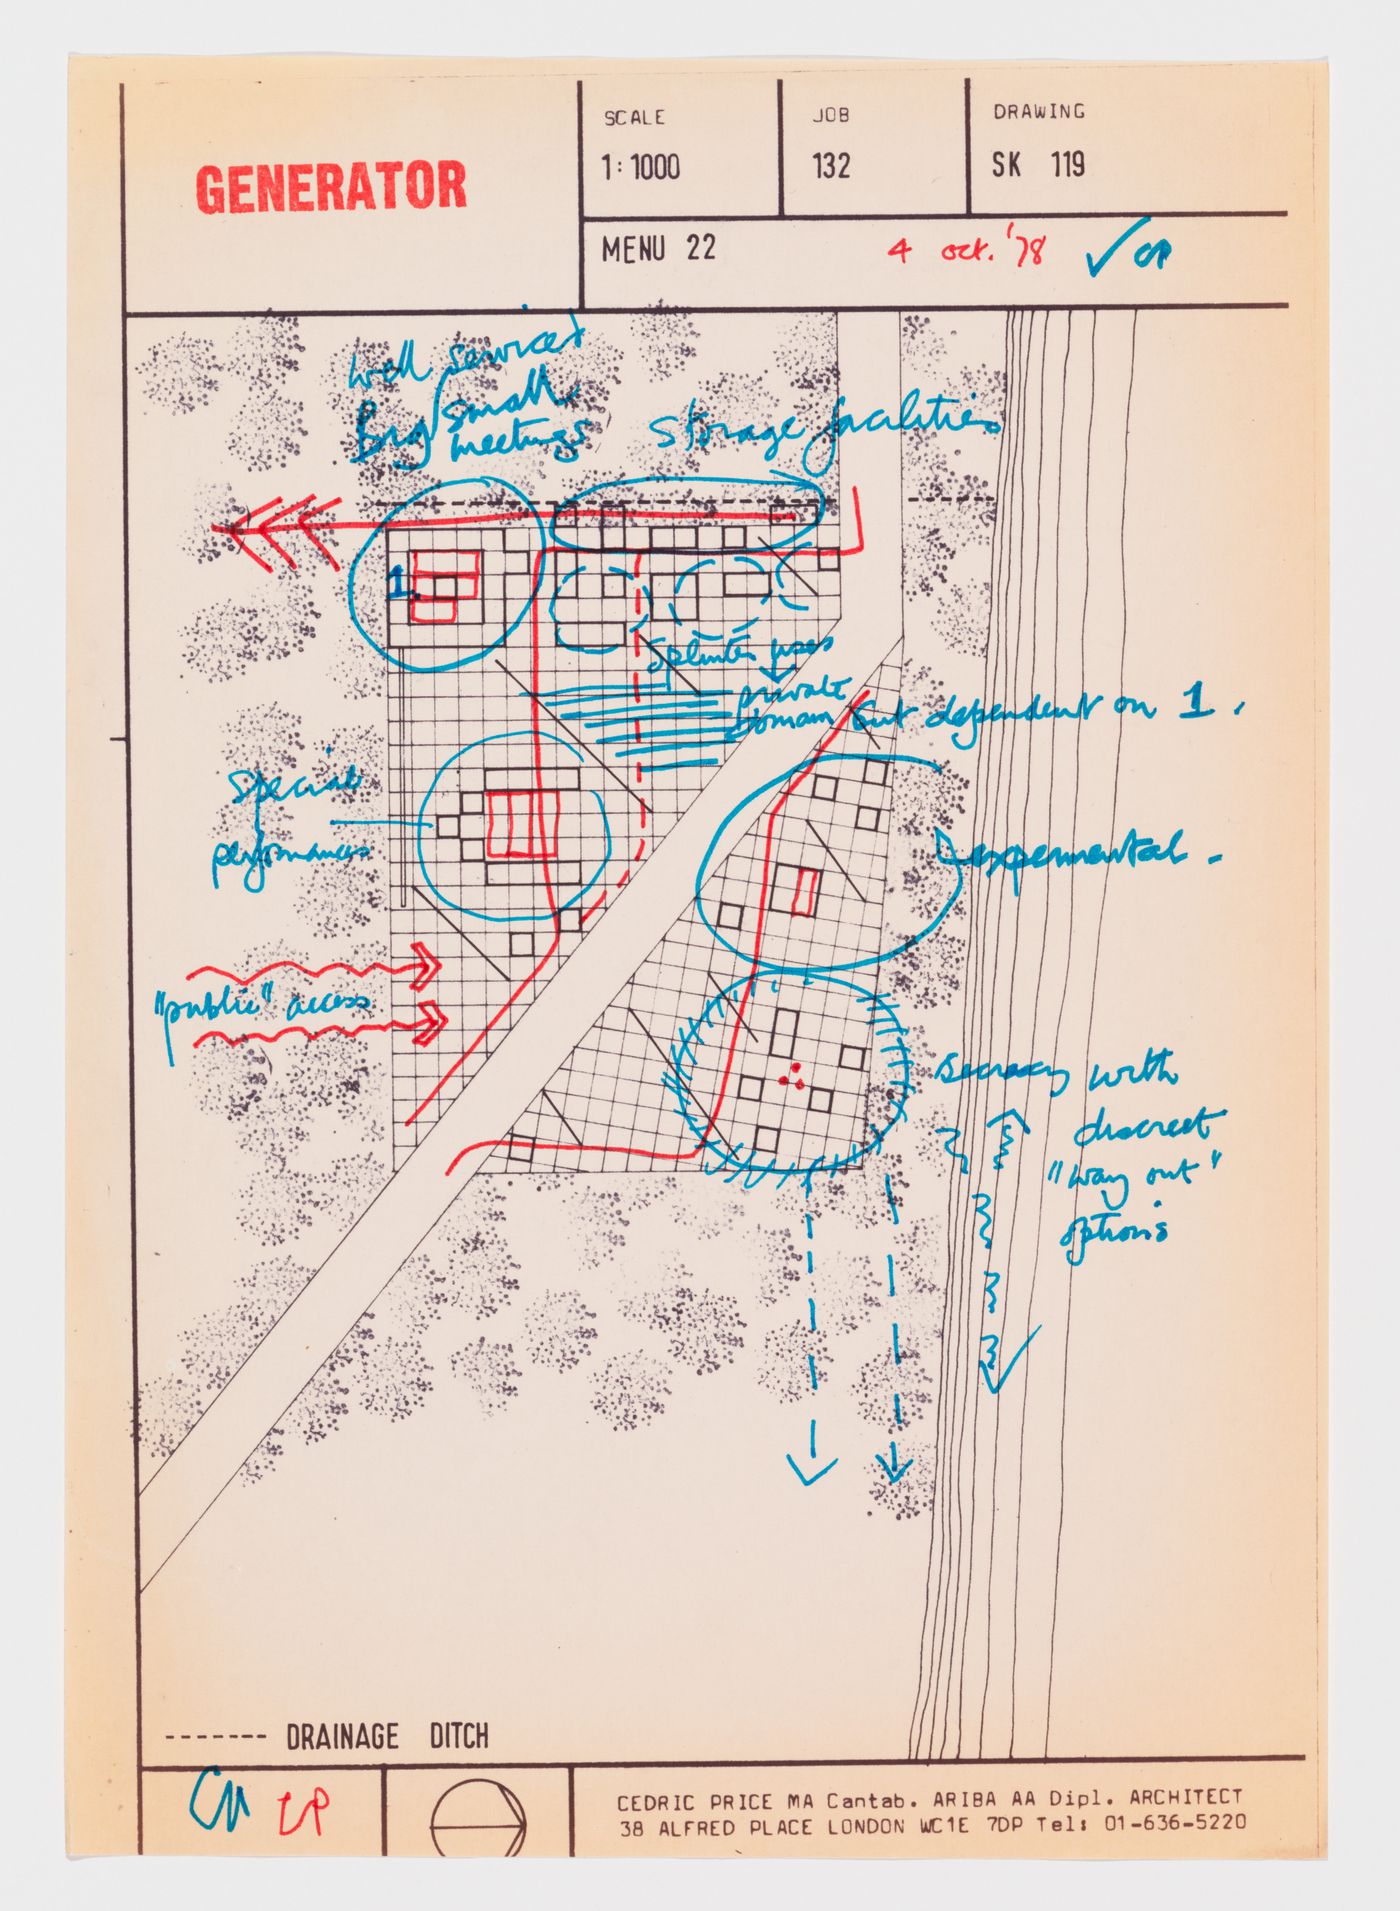 GENERATOR
SCALE
1:1000
JOB
132
DRAWING
SK 119
MENU 22
4 oct. '78
✓ CP
well serviced
Big/small
meetings
storage facilities
1.
splinter uses
private
domain but dependent on 1.
special
performances
experimental.
"public" access
secrecy with
discreet
"way out"
options
DRAINAGE DITCH
CP
CP
CEDRIC PRICE MA Cantab. ARIBA AA Dipl. ARCHITECT
38 ALFRED PLACE LONDON WC1E 7DP Tel: 01-636-5220